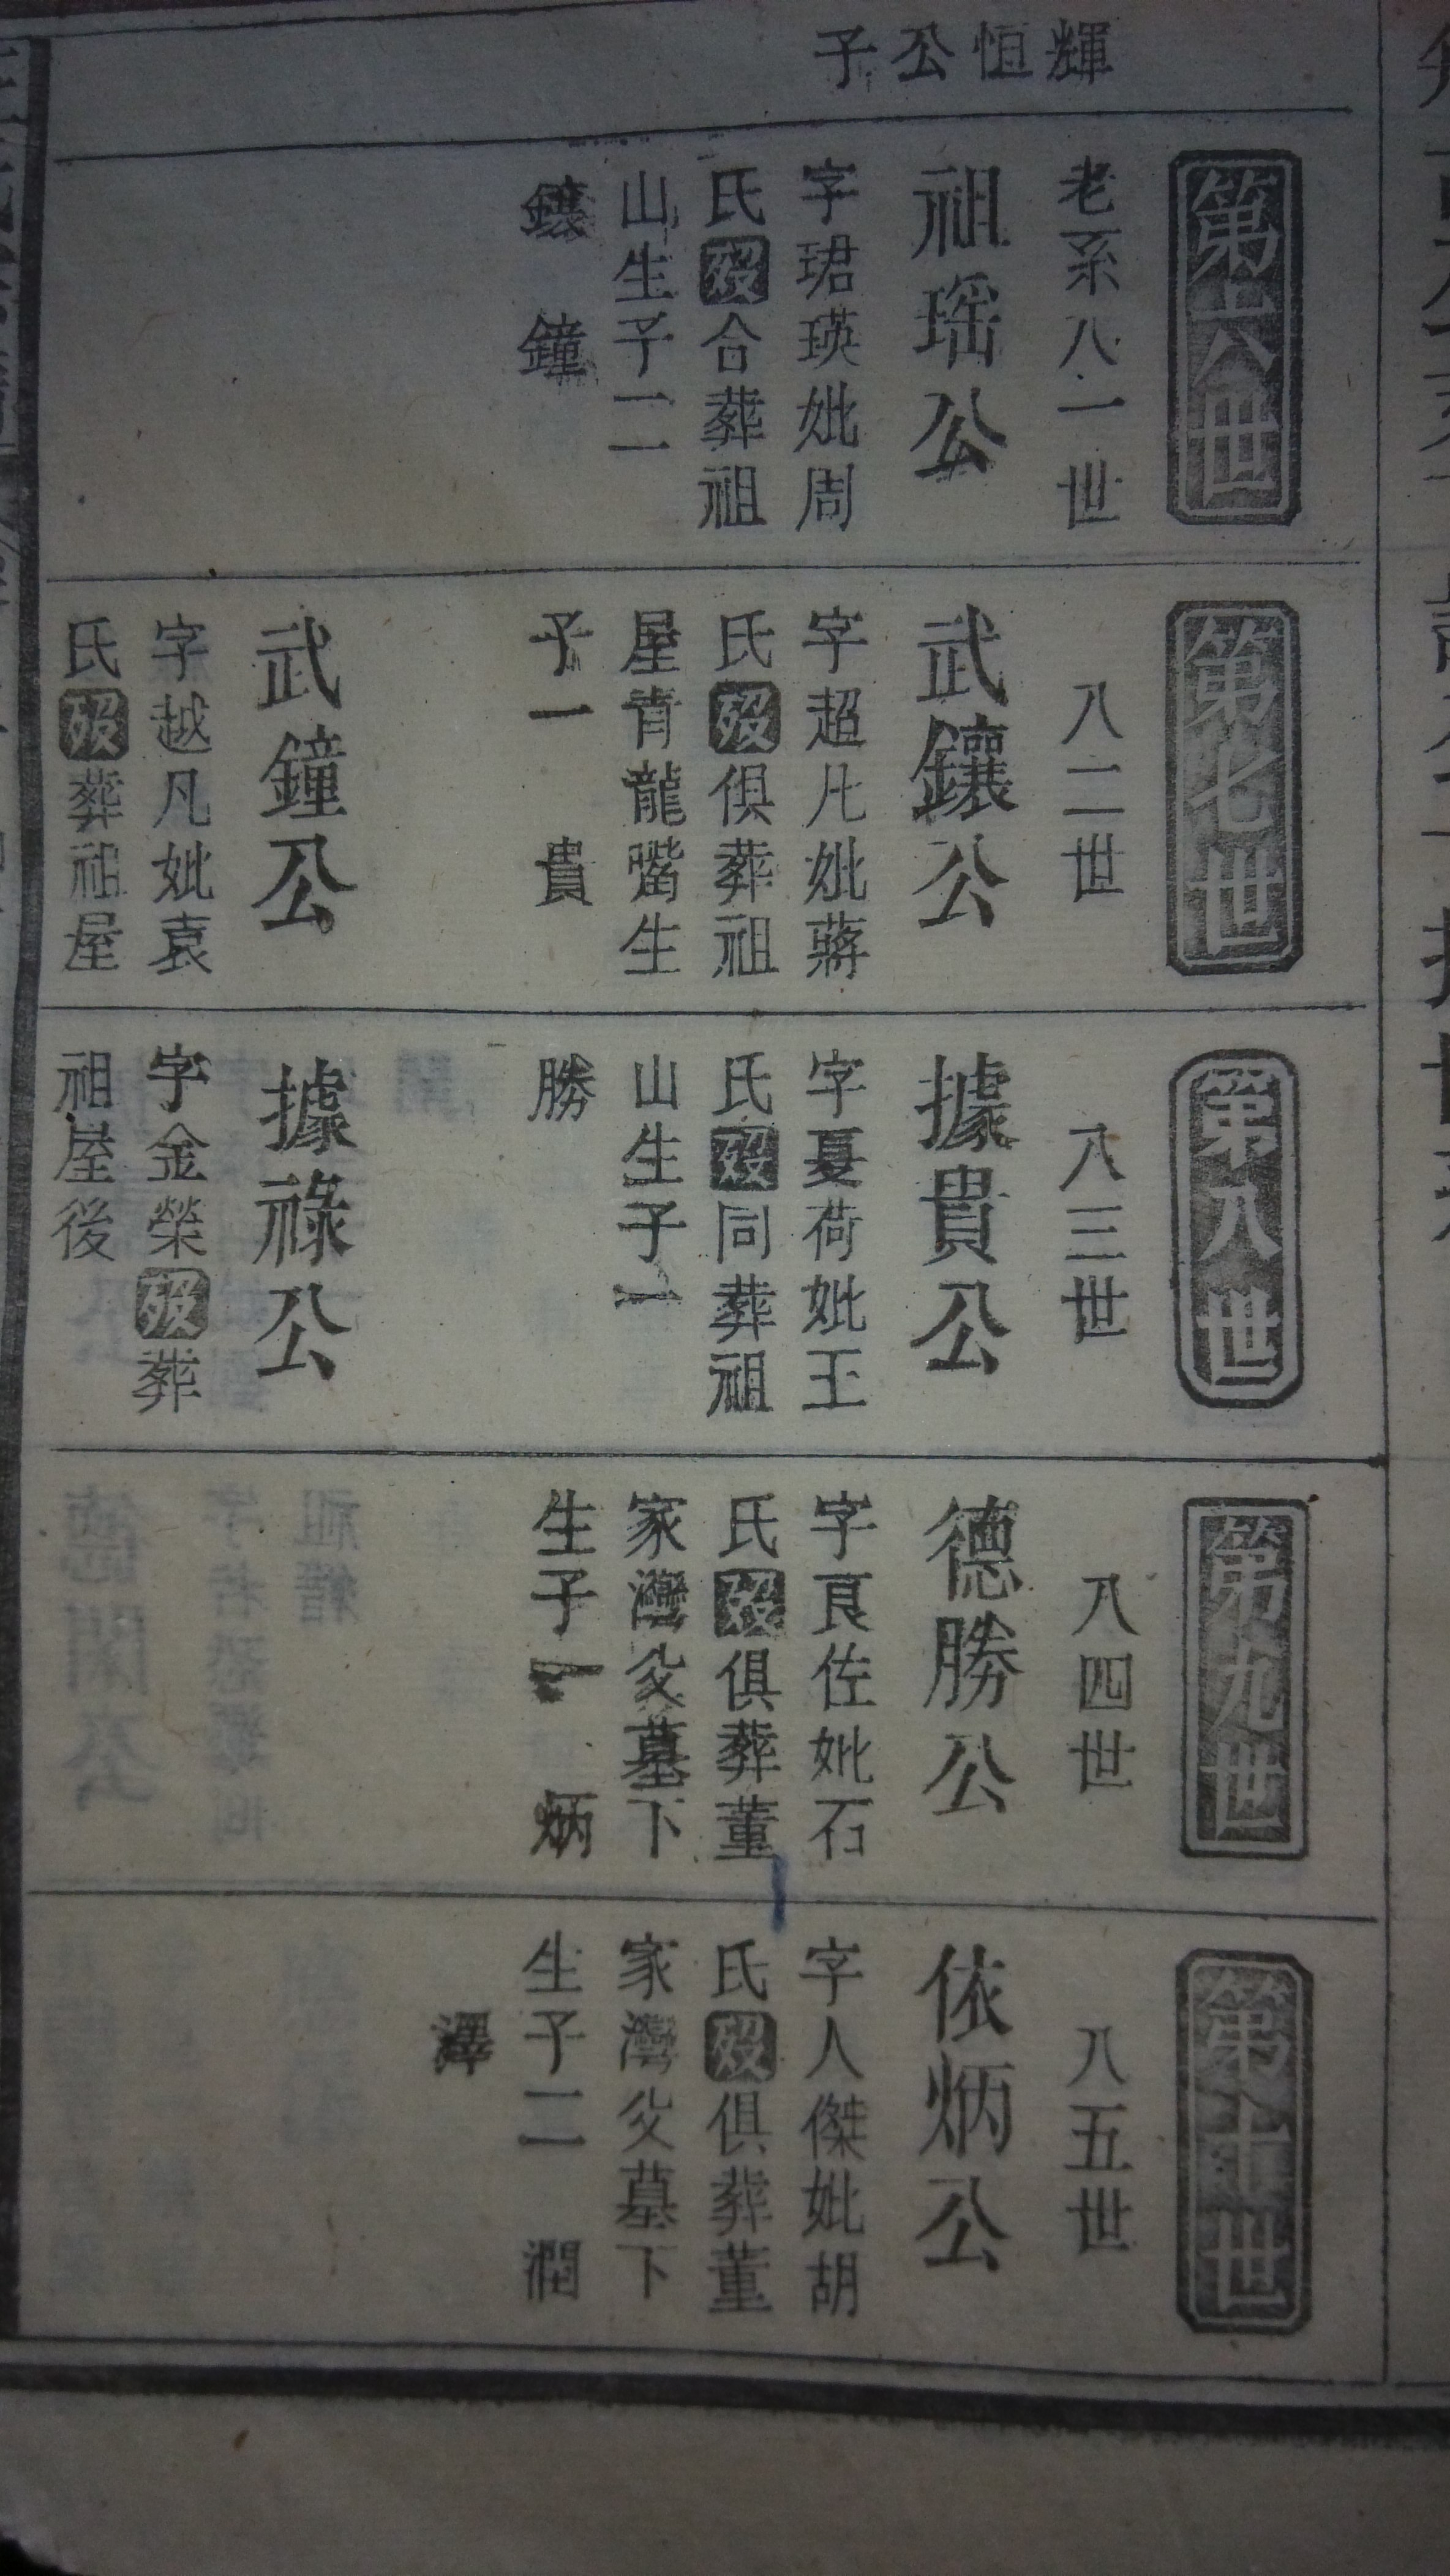 輝恒公子
第六世
老系八一世
祖瑶公
字珺瑛妣周
氏歿合葬祖
山生子二
鑲 鐘
第七世
八二世
武鑲公
字超凡妣蔣
氏歿俱葬祖
屋青龍嘴生
子一 貴
武鐘公
字越凡妣袁
氏歿葬祖屋
第八世
八三世
據貴公
字夏荷妣王
氏歿同葬祖
山生子一
勝
據祿公
字金榮歿葬
祖屋後
第九世
八四世
德勝公
字良佐妣石
氏歿俱葬董
家灣父墓下
生子一 炳
第十世
八五世
依炳公
字人傑妣胡
氏歿俱葬董
家灣父墓下
生子二 潤
澤